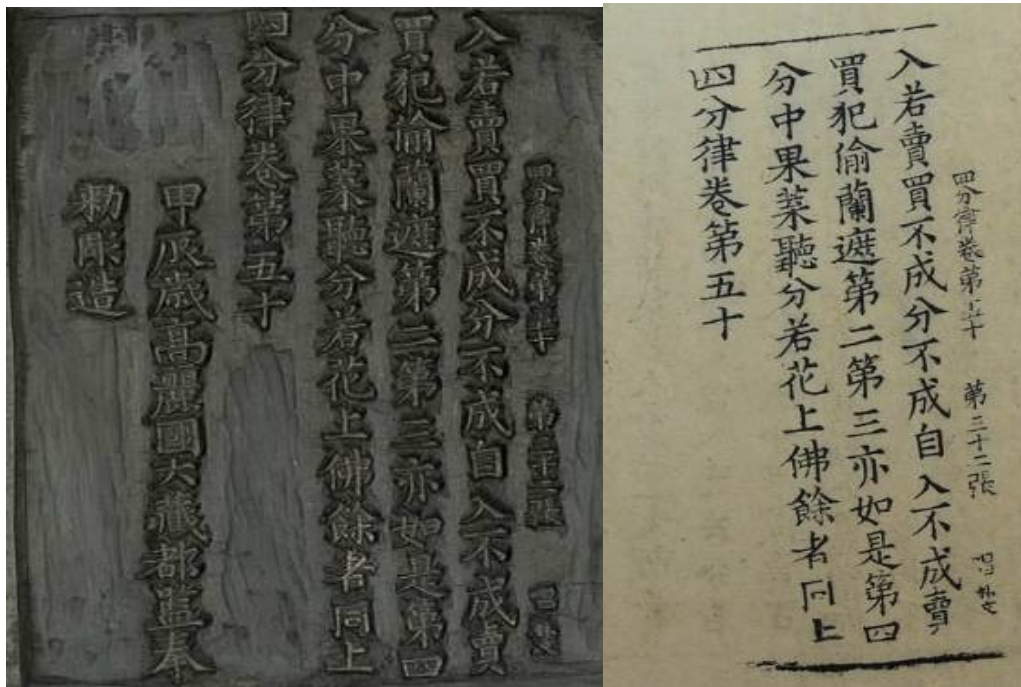 四分律卷第五十 第三十二張
入若賣買不成分不成自入不成賣
買犯偷蘭遮第二第三亦如是第四
分中果菜聽分若花上佛餘者同上
四分律卷第五十
甲辰歲高麗國大藏都監奉
勑彫造
四分律卷第五十 第三十二張
入若賣買不成分不成自入不成賣
買犯偷蘭遮第二第三亦如是第四
分中果菜聽分若花上佛餘者同上
四分律卷第五十